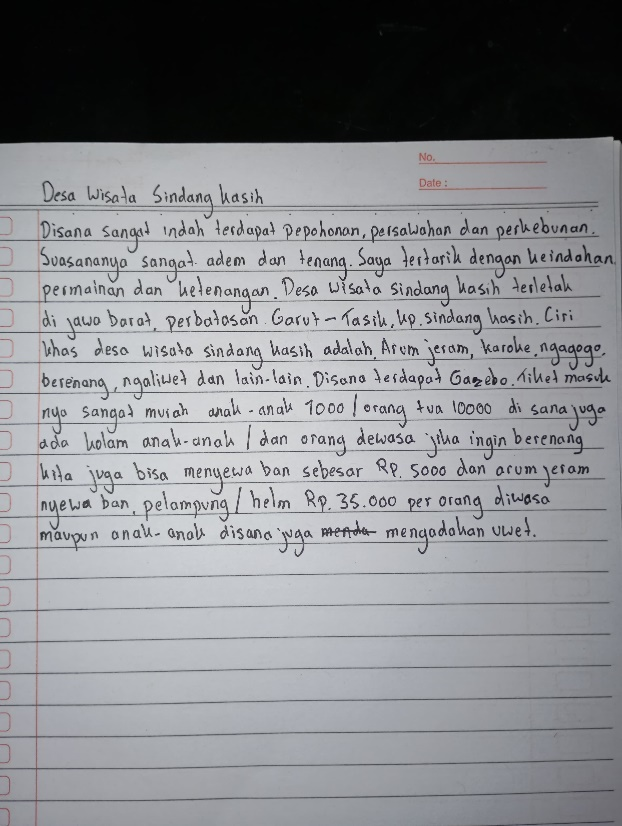 No.
Date :
Desa Wisata Sindang kasih
Disana sangat indah terdapat pepohonan, persawahan dan perkebunan.
Suasananya sangat adem dan tenang. Saya tertarik dengan keindahan
permainan dan ketenangan. Desa wisata sindang kasih terletak
di jawa barat, perbatasan Garut - Tasik, kp. sindang kasih. Ciri
khas desa wisata sindang kasih adalah, Arum jeram, karoke, ngagogo,
berenang, ngaliwet dan lain-lain. Disana terdapat Gazebo. Tiket masuk
nya sangat murah anak-anak 7000 / orang tua 10000 di sana juga
ada kolam anak-anak / dan orang dewasa jika ingin berenang
kita juga bisa menyewa ban sebesar Rp. 5000 dan arum jeram
nyewa ban, pelampung / helm Rp. 35.000 per orang diwasa
maupun anak-anak disana juga menda mengadakan uwet.